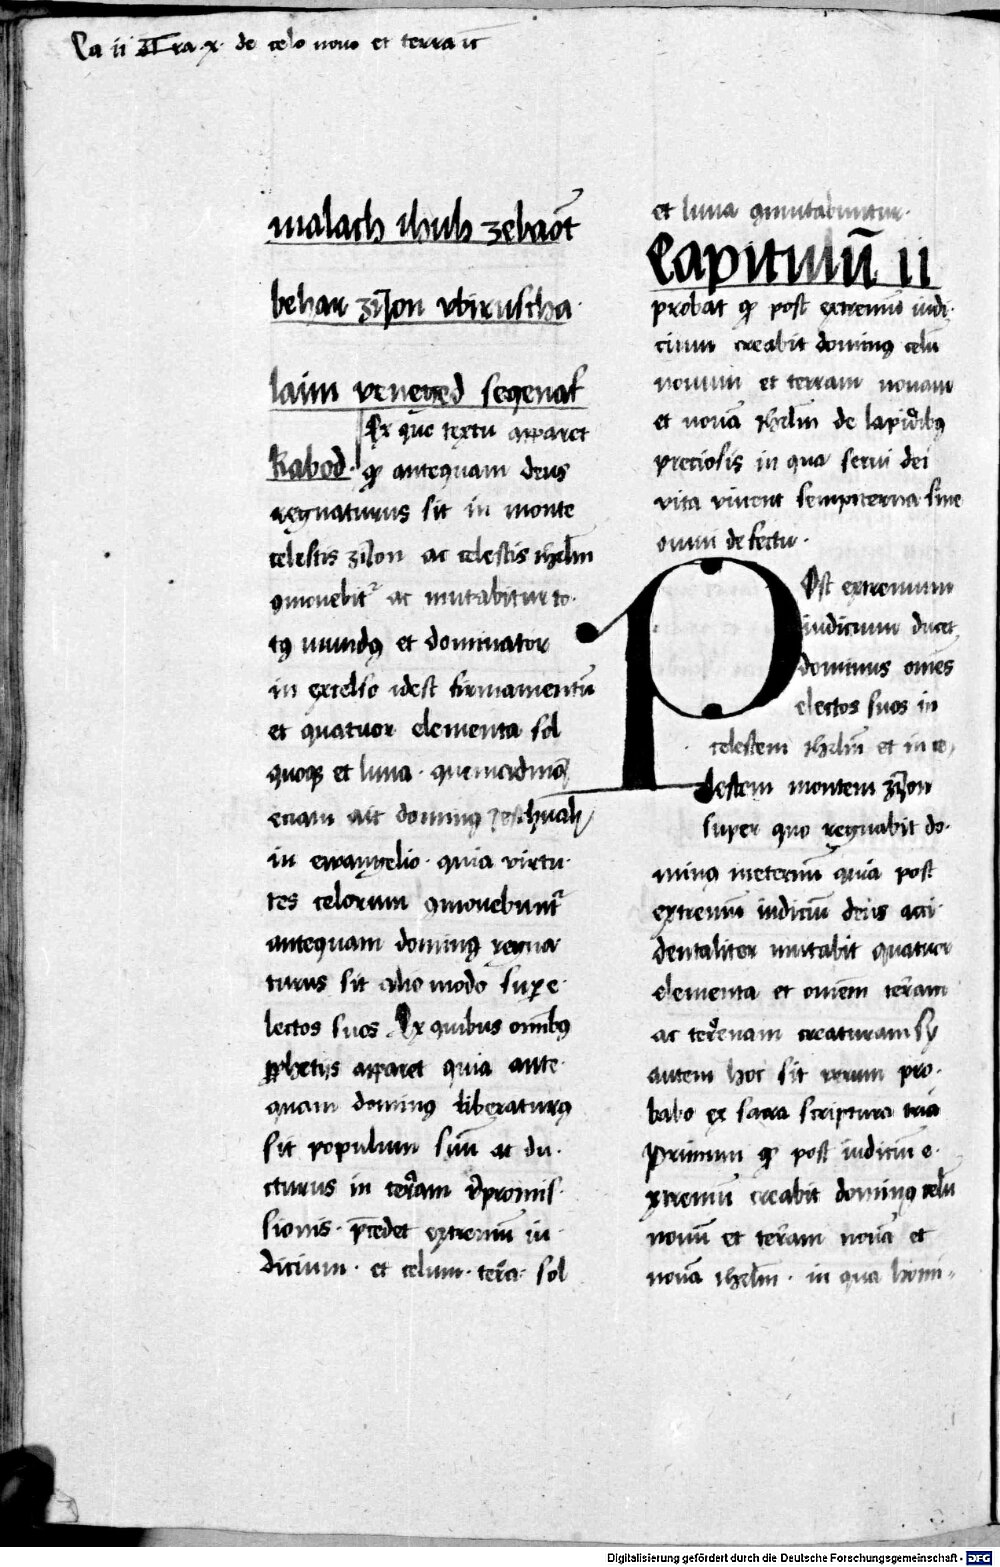 Ca ii Tra x de celo novo et terra
malach ihuh zebaot̄
behar zijon vbiruscha
laim veneged seqenaf
Kabod. Ex quo textu apparet
qꝫ antequam deus
regnaturus sit in monte
celestis zijon ac celestis ihrlm̄
ꝯmovebit᷑ ac mutabitur to
tꝰ mundꝰ et dominator
in excelso idest firmamentū
et quatuor elementa sol
quoqꝫ et luna
etiam ait dominꝰ Jeschuah
in ewangelio quia virtu
tes celorum ꝯmovebunt᷑
antequam dominꝰ regna
turus sit alio modo supe
lectos suos Ex quibus omībꝰ
ꝓphetijs apparet quia ante
quam dominꝰ liberaturꝰ
sit populum suū ac du
cturus in terram repromis
sionis p̄cedet extremū iu
dicium et celum terra sol
et luna ꝯmutabuntur
Capitulū ii
probat qꝫ post extremū iudi
cium creabit dominꝰ celū
novum et terram novam
et novā ihrlm̄ de lapidibꝰ
preciosis in qua servi dei
vita vivent sempiterna sine
omni defectu
Post extremum
iudicium ducet
dominus om̄es
electos suos in
celestem ihrlm̄ et in ce
lestem montem zijon
super quo regnabit do
minꝰ ineternū quia post
extremū iudiciū deus acci
dentaliter mutabit quatuor
elementa et om̄em terram
ac terrenam creaturam
autem hoc sit verum pro
babo ex sacra scriptura tria
Primum qꝫ post iudiciū e
xtremū creabit dominꝰ celū
novū et terram novā et
novā ihrlm̄ in qua homi
Digitalisierung gefördert durch die Deutsche Forschungsgemeinschaft - DFG